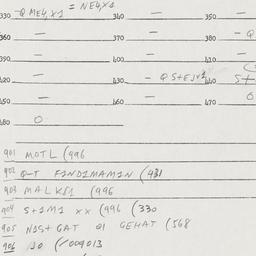 = NE4,X1
330 Q ME4,X1 340 — 350 —
360 — 370 — 380 — Q
390 — 400 — 410
420 — 430 — Q S+EJX1 440 S+
450 — 460 — 470 0
480 0
901 MOTL (996
902 Q-T F1ND1MAM1N (431
903 MALKS1 (996
904 S+1M1 XX (996 (330
905 N1S+GAT 01 GEHAT (568
906 JO (1009013